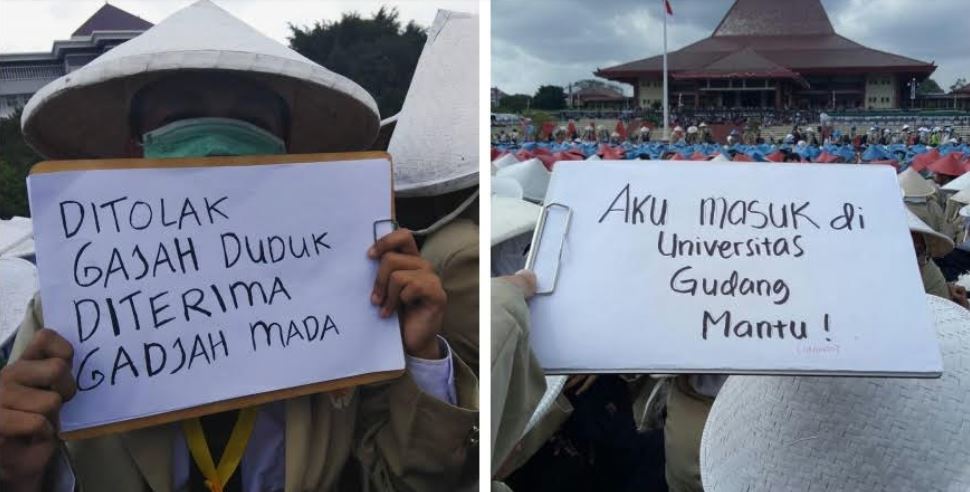 DITOLAK
GAJAH DUDUK
DITERIMA
GADJAH MADA
AKU MASUK di
Universitas
Gudang
Mantu !